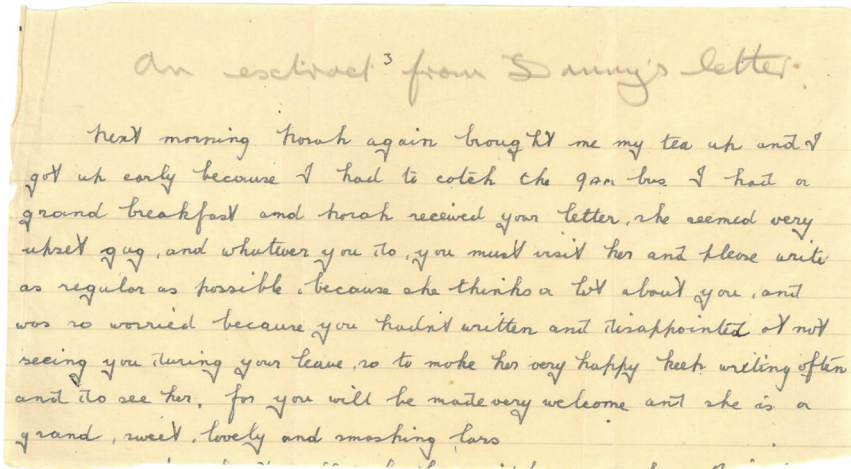 3
An extract from Danny's letter.
Next morning Norah again brought me my tea up and I
got up early because I had to catch the 9am bus I had a
grand breakfast and Norah received your letter, she seemed very
upset gug, and whatever you do, you must visit her and please write
as regular as possible, because she thinks a lot about you, and
was so worried because you hadn't written and disappointed at not
seeing you during your leave, so to make her very happy keep writing often
and do see her, for you will be made very welcome and she is a
grand, sweet, lovely and smashing lass